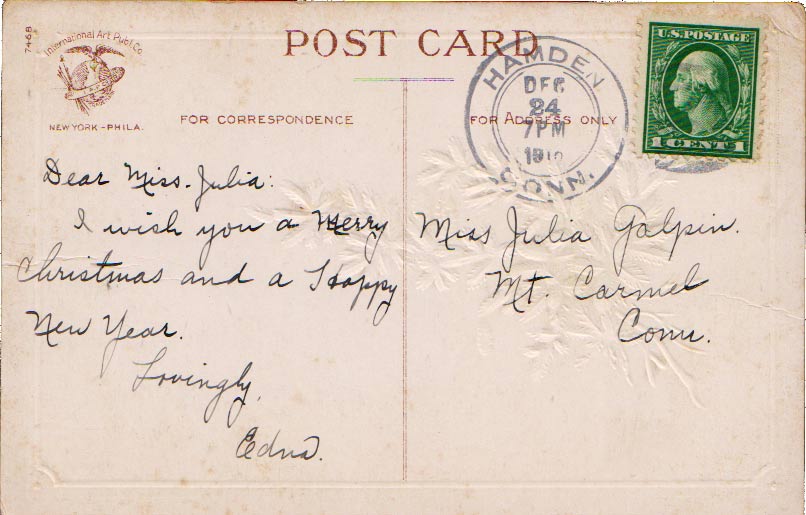 7468
International Art Publ. Co.
NEW YORK - PHILA.
POST CARD
FOR CORRESPONDENCE
FOR ADDRESS ONLY
HAMDEN
DEC
24
7PM
CONN.
U.S. POSTAGE
1 CENT 1
Dear Miss. Julia:
I wish you a Merry
Christmas and a Happy
New Year.
Lovingly,
Edna.
Miss Julia Galpin.
Mt. Carmel
Conn.